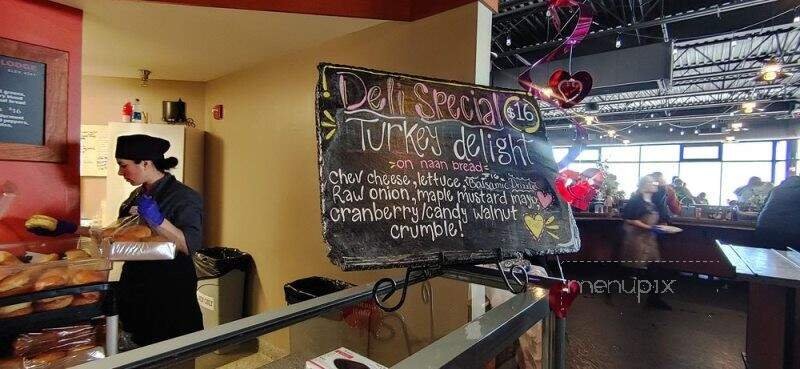 LODGE
Deli Special $16
Turkey delight
on naan bread
Chev cheese, lettuce, Balsamic Drizzle
Raw onion, maple mustard mayo,
cranberry/candy walnut
crumble!
menupix